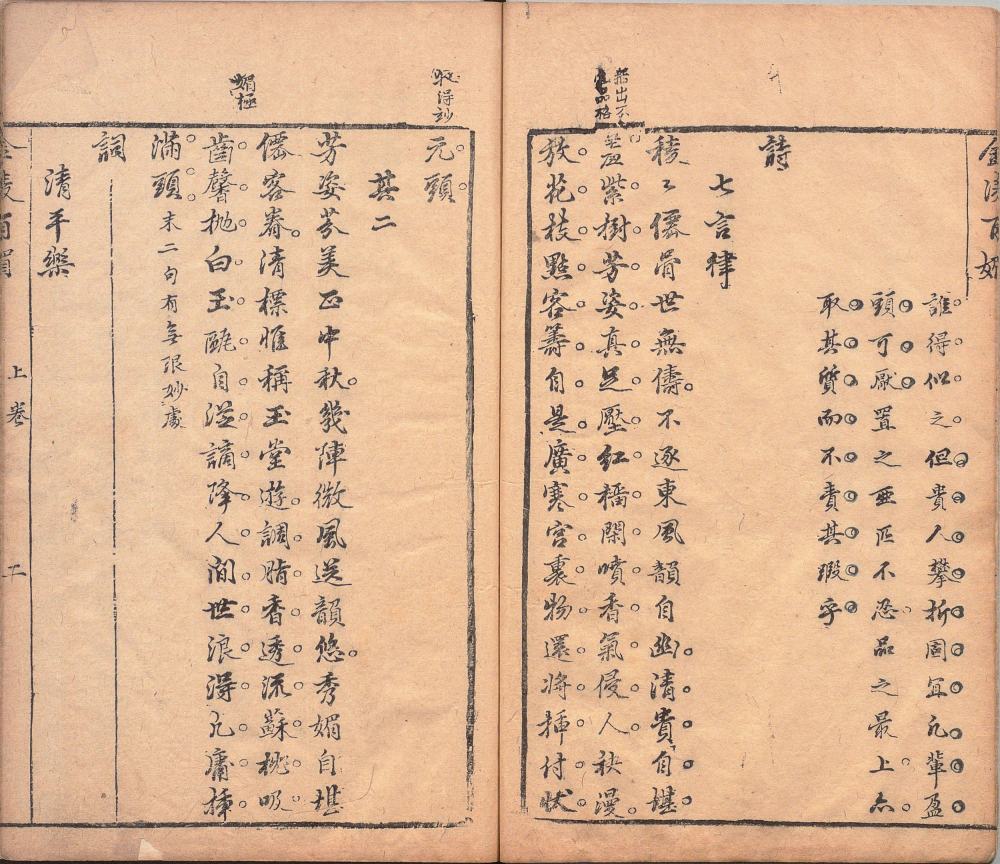 誰得似之但貴人攀折固宜凡輩盈
頭可厭置之亜匹不忍品之最上亦
取其質而不責其瑕乎
詩
七言律
稜〻僊骨世無儔不逐東風韻自幽清貴自堪
紫樹芳姿真足壓紅榴閑噴香氣侵人袂漫
放花枝點客籌自是廣寒宮裏物還将插付狀
元頭
其二
芳姿芬美正中秋幾陣微風送韻悠秀媚自堪
僊客眷清標惟稱玉堂遊調脂香透流蘇桃吸
齒馨拋白玉甌自从謫降人间世浪得凡庸插
滿頭末二句有無限妙處
詞
清平樂
媚極
上卷